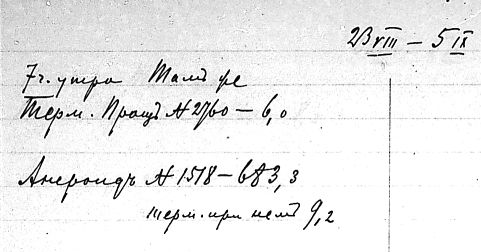 23 VIII – 5 IX
7 ч. утра Тамъ же
Терм. Пращъ № 2760 – 6,0
Анероидъ № 1518 – 683,3
терм. при немъ 9,2